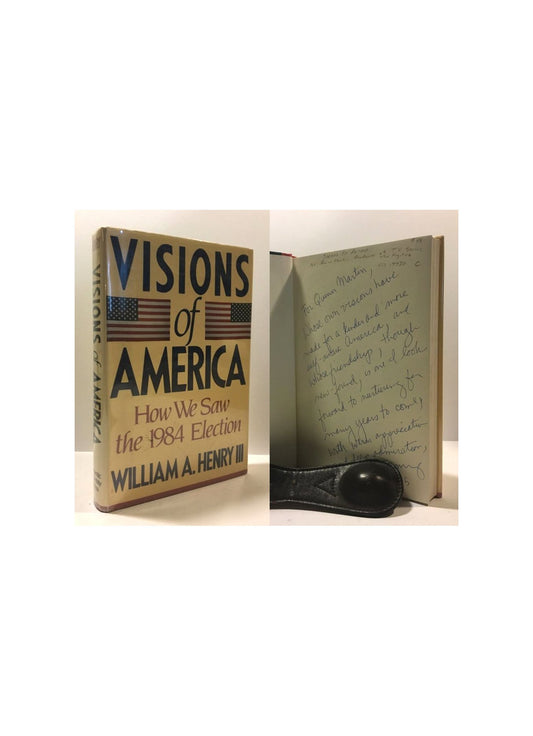 VISIONS
of
AMERICA
How We Saw
the 1984 Election
WILLIAM A. HENRY III
VISIONS of AMERICA
For Quinn Martin,
whose own visions have
made for a kinder and more
self-aware America, and
whose friendship, though
new-found, is one I look
forward to nurturing for
many years to come,
with warm appreciation
admiration,